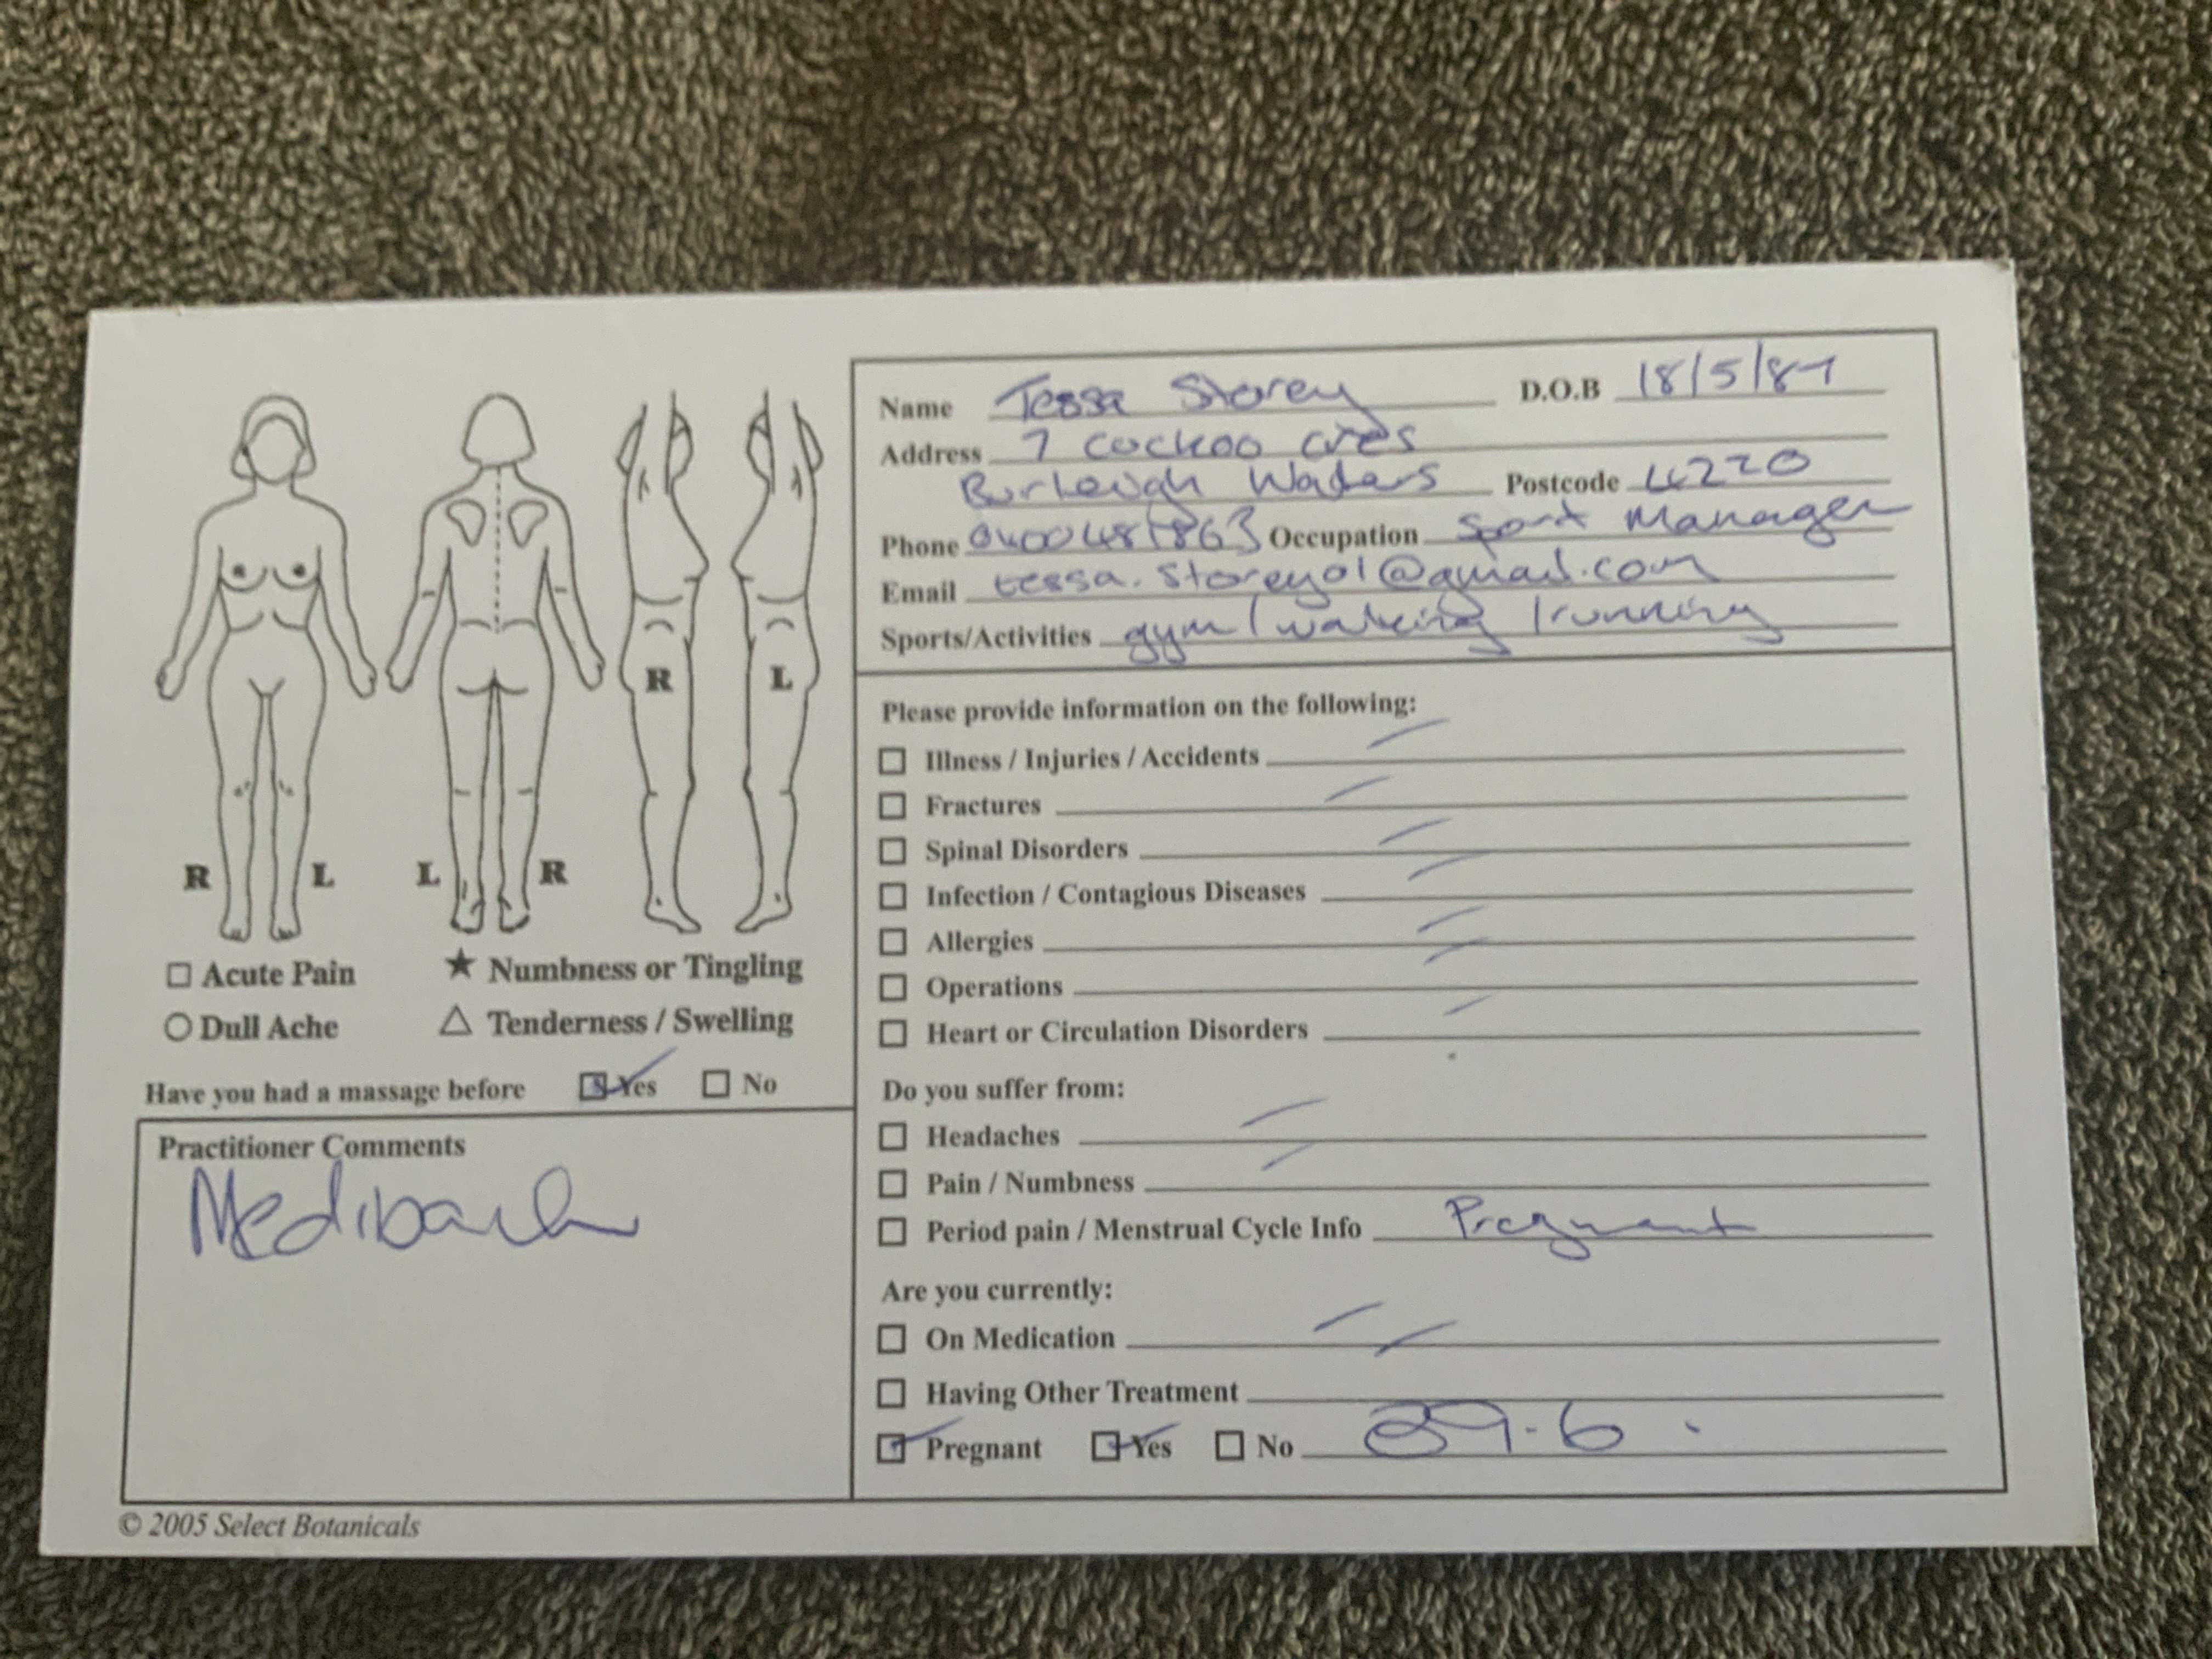 Name Tessa Storey D.O.B 18/5/87
Address 7 Cuckoo Cres
Burleigh Waters Postcode 4220
Phone Occupation Sport Manager
Email tessa.storey01@gmail.com
Sports/Activities gym / walking / running
R L
L R
R L
□ Acute Pain ★ Numbness or Tingling
○ Dull Ache △ Tenderness / Swelling
Have you had a massage before ☑ Yes □ No
Practitioner Comments
Medibank
© 2005 Select Botanicals
Please provide information on the following:
□ Illness / Injuries / Accidents /
□ Fractures /
□ Spinal Disorders /
□ Infection / Contagious Diseases /
□ Allergies /
□ Operations /
□ Heart or Circulation Disorders /
Do you suffer from:
□ Headaches /
□ Pain / Numbness /
□ Period pain / Menstrual Cycle Info Pregnant
Are you currently:
□ On Medication /
□ Having Other Treatment /
☑ Pregnant ☑ Yes □ No 39.6.